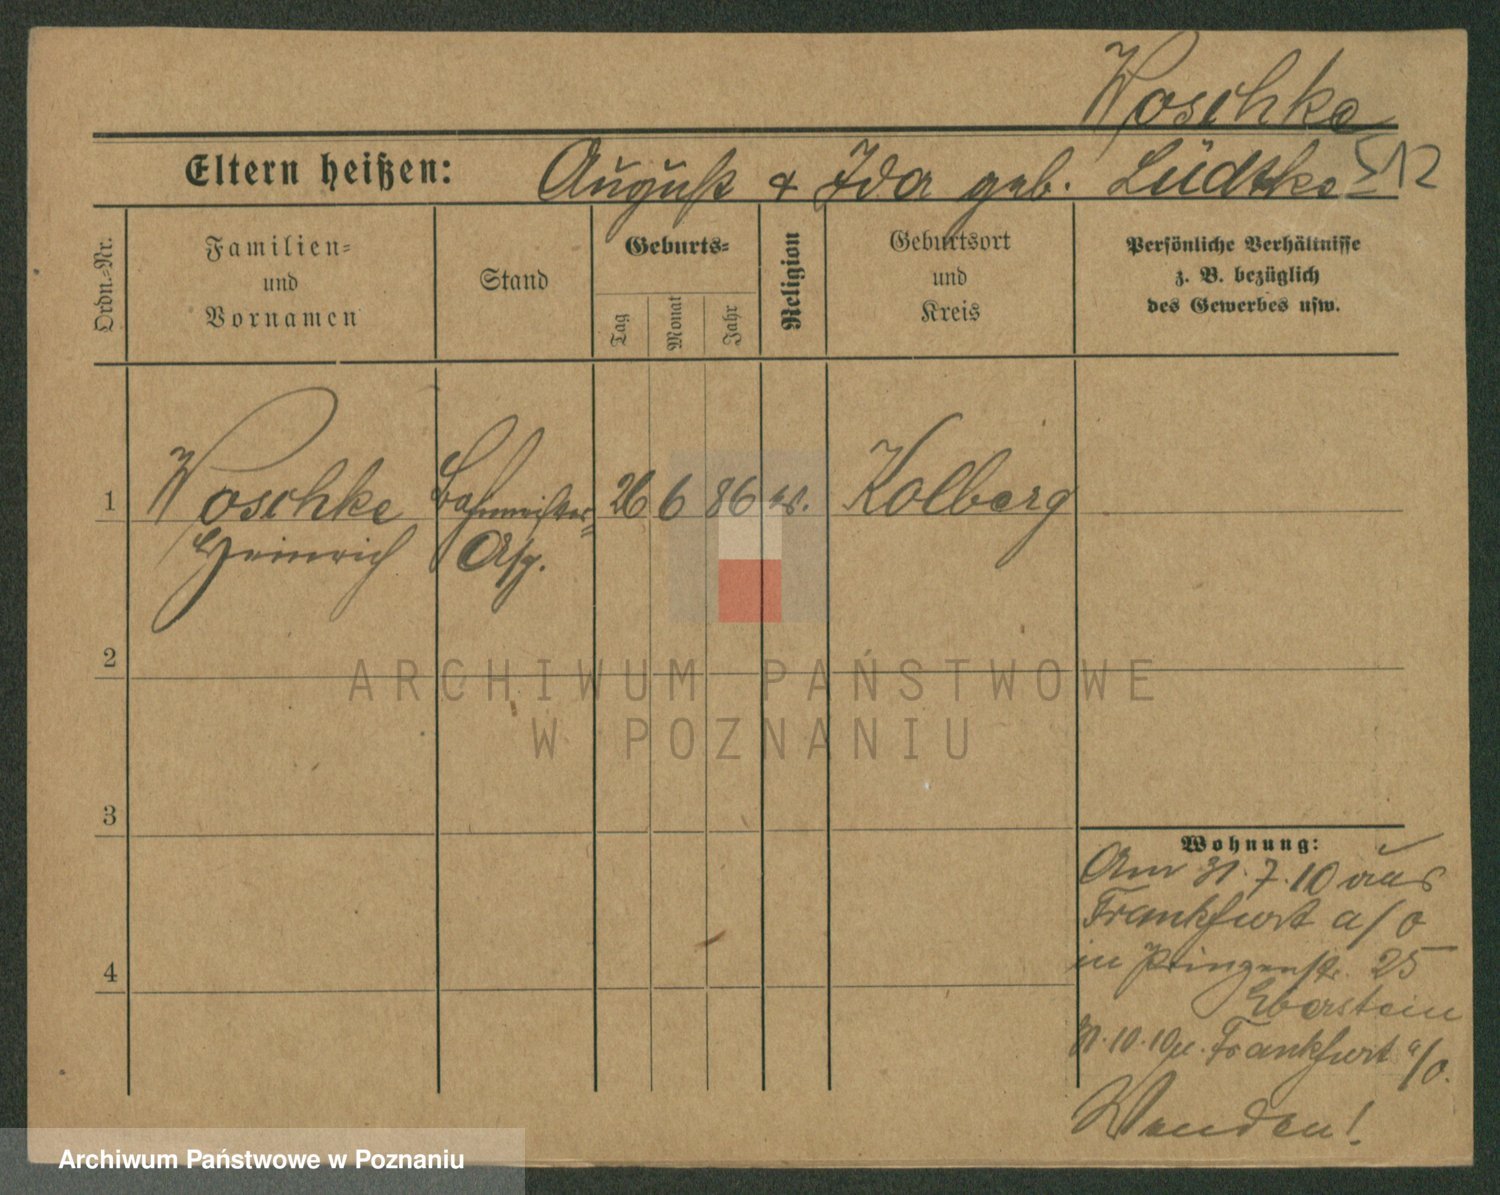 Woschke
Eltern heißen: August & Ida geb. Lüdtke
Ordn.-Nr.
Familien-
und
Vornamen
Stand
Geburts-
Tag
Monat
Jahr
Religion
Geburtsort
und
Kreis
Persönliche Verhältnisse
z. B. bezüglich
des Gewerbes usw.
1 Woschke Bahnmeister- 26 6 86 ev. Kolberg
Heinrich Asp.
2
3
4
Wohnung:
Am 31.7.10 aus
Frankfurt a/O
in Prinzenstr. 25
Eberstein
31.10.10 n. Frankfurt a/O.
Wenden!
ARCHIWUM PAŃSTWOWE
W POZNANIU
Archiwum Państwowe w Poznaniu